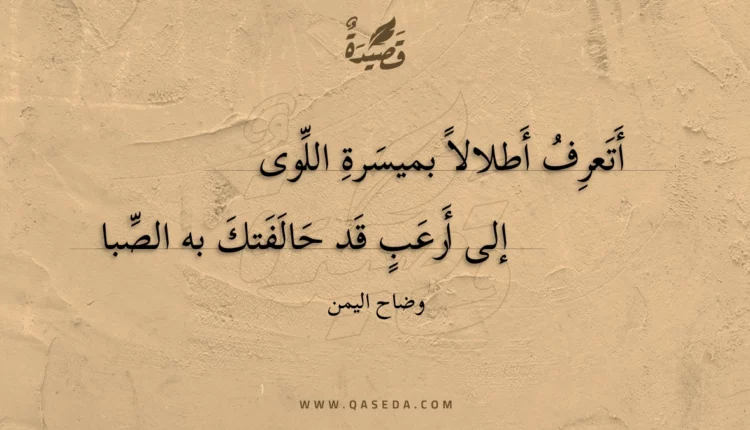 قَصِيدَةٌ
أَتَعرِفُ أَطلالاً بميسَرةِ اللِّوى
إلى أَرعَبٍ قَد حَالَفَتكَ به الصِّبا
وضاح اليمن
WWW.QASEDA.COM